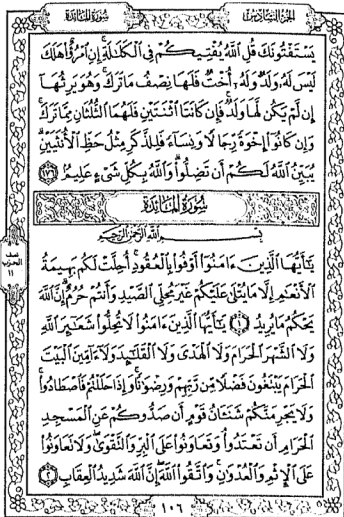 الجزء السادس سورة المائدة
يَسْتَفْتُونَكَ قُلِ اللَّهُ يُفْتِيكُمْ فِي الْكَلَالَةِ إِنِ امْرُؤٌا هَلَكَ
لَيْسَ لَهُ وَلَدٌ وَلَهُ أُخْتٌ فَلَهَا نِصْفُ مَا تَرَكَ وَهُوَ يَرِثُهَا
إِن لَّمْ يَكُن لَّهَا وَلَدٌ فَإِن كَانَتَا اثْنَتَيْنِ فَلَهُمَا الثُّلُثَانِ مِمَّا تَرَكَ
وَإِن كَانُوا إِخْوَةً رِّجَالًا وَنِسَاءً فَلِلذَّكَرِ مِثْلُ حَظِّ الْأُنثَيَيْنِ
يُبَيِّنُ اللَّهُ لَكُمْ أَن تَضِلُّوا وَاللَّهُ بِكُلِّ شَيْءٍ عَلِيمٌ ١٧٦
سُورَةُ المَائِدَةِ
بِسْمِ اللَّهِ الرَّحْمَٰنِ الرَّحِيمِ
يَٰأَيُّهَا الَّذِينَ ءَامَنُوا أَوْفُوا بِالْعُقُودِ أُحِلَّتْ لَكُم بَهِيمَةُ
الْأَنْعَٰمِ إِلَّا مَا يُتْلَىٰ عَلَيْكُمْ غَيْرَ مُحِلِّي الصَّيْدِ وَأَنتُمْ حُرُمٌ إِنَّ اللَّهَ
يَحْكُمُ مَا يُرِيدُ ١ يَٰأَيُّهَا الَّذِينَ ءَامَنُوا لَا تُحِلُّوا شَعَٰئِرَ اللَّهِ
وَلَا الشَّهْرَ الْحَرَامَ وَلَا الْهَدْيَ وَلَا الْقَلَٰئِدَ وَلَا ءَامِّينَ الْبَيْتَ
الْحَرَامَ يَبْتَغُونَ فَضْلًا مِّن رَّبِّهِمْ وَرِضْوَٰنًا وَإِذَا حَلَلْتُمْ فَاصْطَادُوا
وَلَا يَجْرِمَنَّكُمْ شَنَـَٔانُ قَوْمٍ أَن صَدُّوكُمْ عَنِ الْمَسْجِدِ
الْحَرَامِ أَن تَعْتَدُوا وَتَعَاوَنُوا عَلَى الْبِرِّ وَالتَّقْوَىٰ وَلَا تَعَاوَنُوا
عَلَى الْإِثْمِ وَالْعُدْوَٰنِ وَاتَّقُوا اللَّهَ إِنَّ اللَّهَ شَدِيدُ الْعِقَابِ ٢
نصف
الحزب
١١
١٠٦